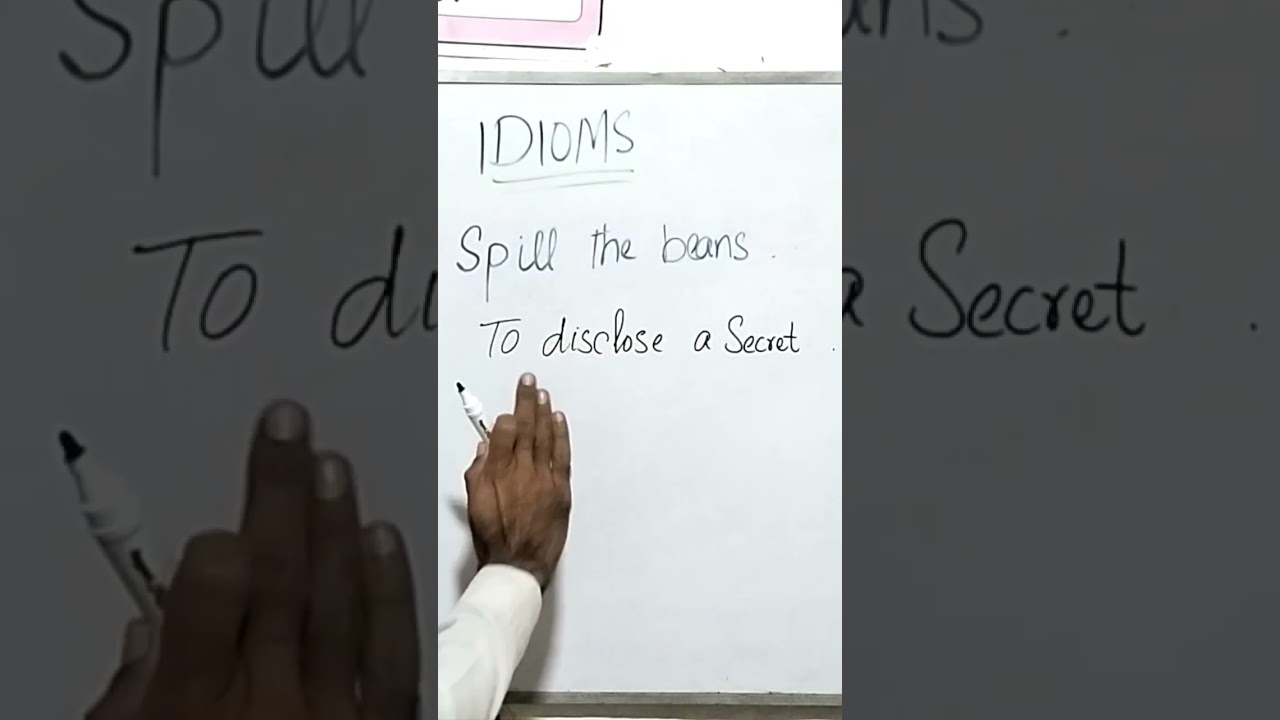 IDIOMS
Spill the beans.
To disclose a Secret.